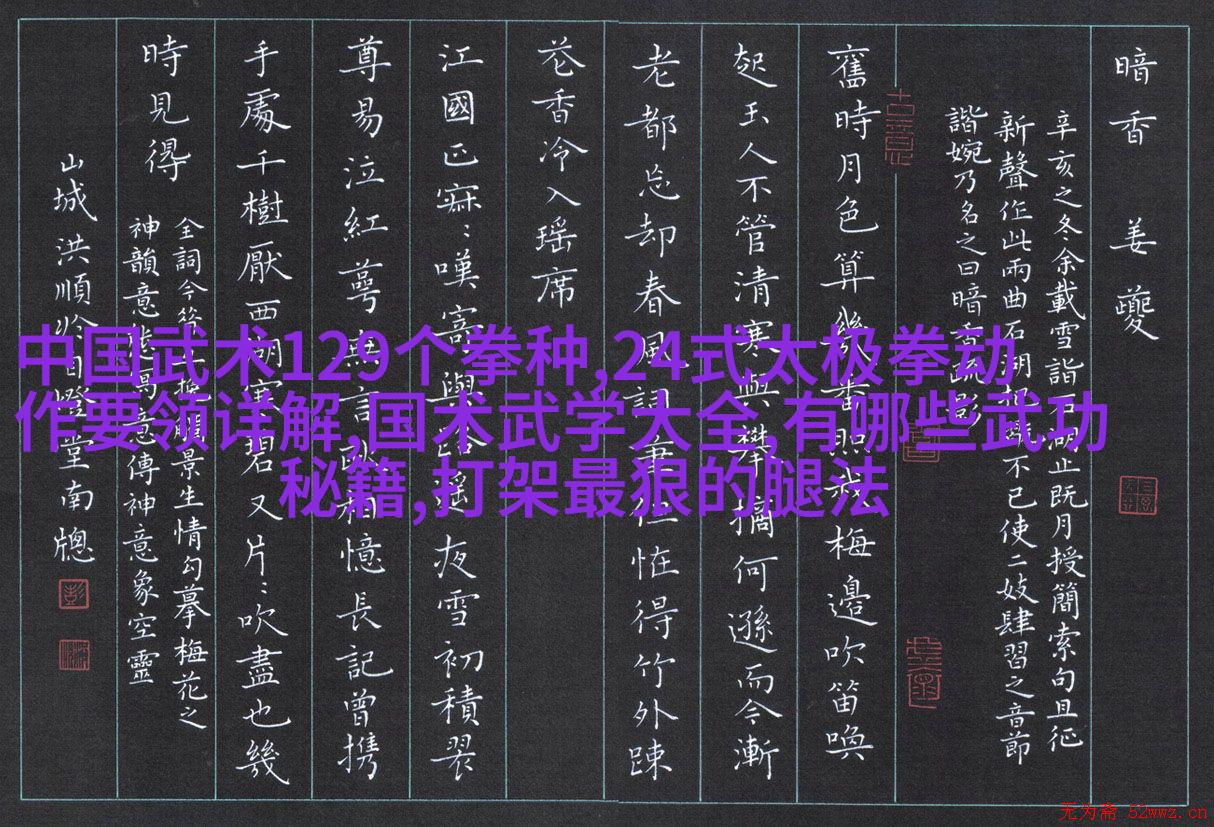 暗香 姜夔
辛亥之冬余載雪詣石湖止既月授簡索句且征
新聲作此兩曲石湖把玩不已使二妓肆習之音節
諧婉乃名之曰暗香疏影
古意
舊時月色算幾番照我梅邊吹笛喚
起玉人不管清寒與攀摘何遜而今漸
老都忘却春風詞筆但怪得竹外疎
花香冷入瑶席
江國正寂:嘆寄與路遥夜雪初積翠
尊易泣紅萼無言耿相憶長記曾携
手處千樹壓西湖寒碧又片:吹盡也幾
時見得
全詞今景生情勾摹梅花之
神韻意態寓意傳神意象空靈
山城洪順堂南牕
中国武术129个拳种,24式太极拳动
作要领详解,国术武学大全,有哪些武功
秘籍,打架最狠的腿法
无为斋 52wwz.cn